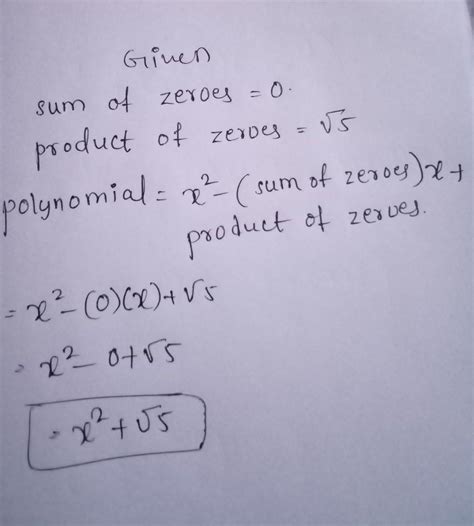 Given
sum of zeroes = 0.
product of zeroes = √5
polynomial = x² - (sum of zeroes)x +
product of zeroes.
= x² - (0)(x) + √5
= x² - 0 + √5
= x² + √5